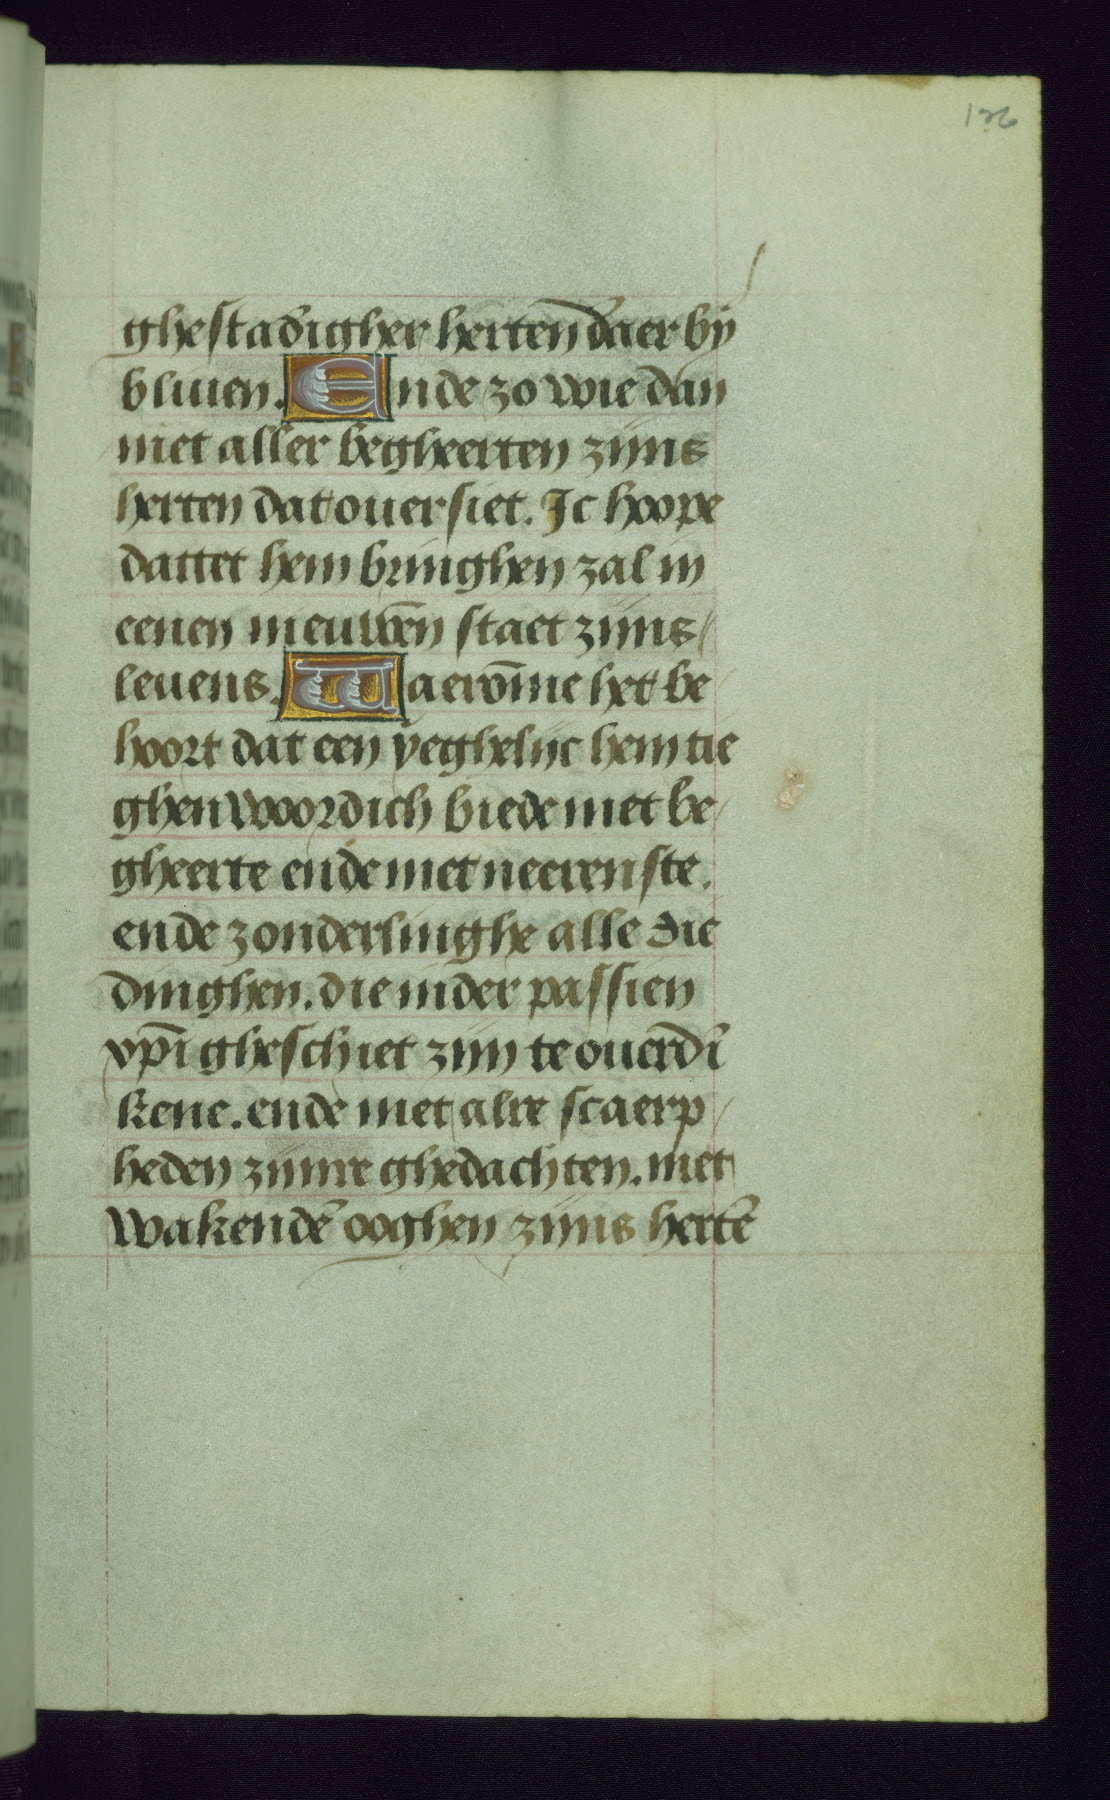 126
ghestadigher herten daer by
bliuen. Ende zo wie dan
met aller begheerten zijns
herten dat ouersiet. Ic hope
dattet hem bringhen zal in
eenen nieuwēn staet zijns
leuens. Waerōme het be
hoort dat een yeghelijc hem tie
ghenwoordich biede met be
gheerte ende met neerenste.
ende zonderlinghe alle die
dinghen. die in der passien
xp̄i gheschiet zijn te ouerdī
kene. ende met alre scaerp
heden zijnre ghedachten. met
wakendē ooghen zijns hertē